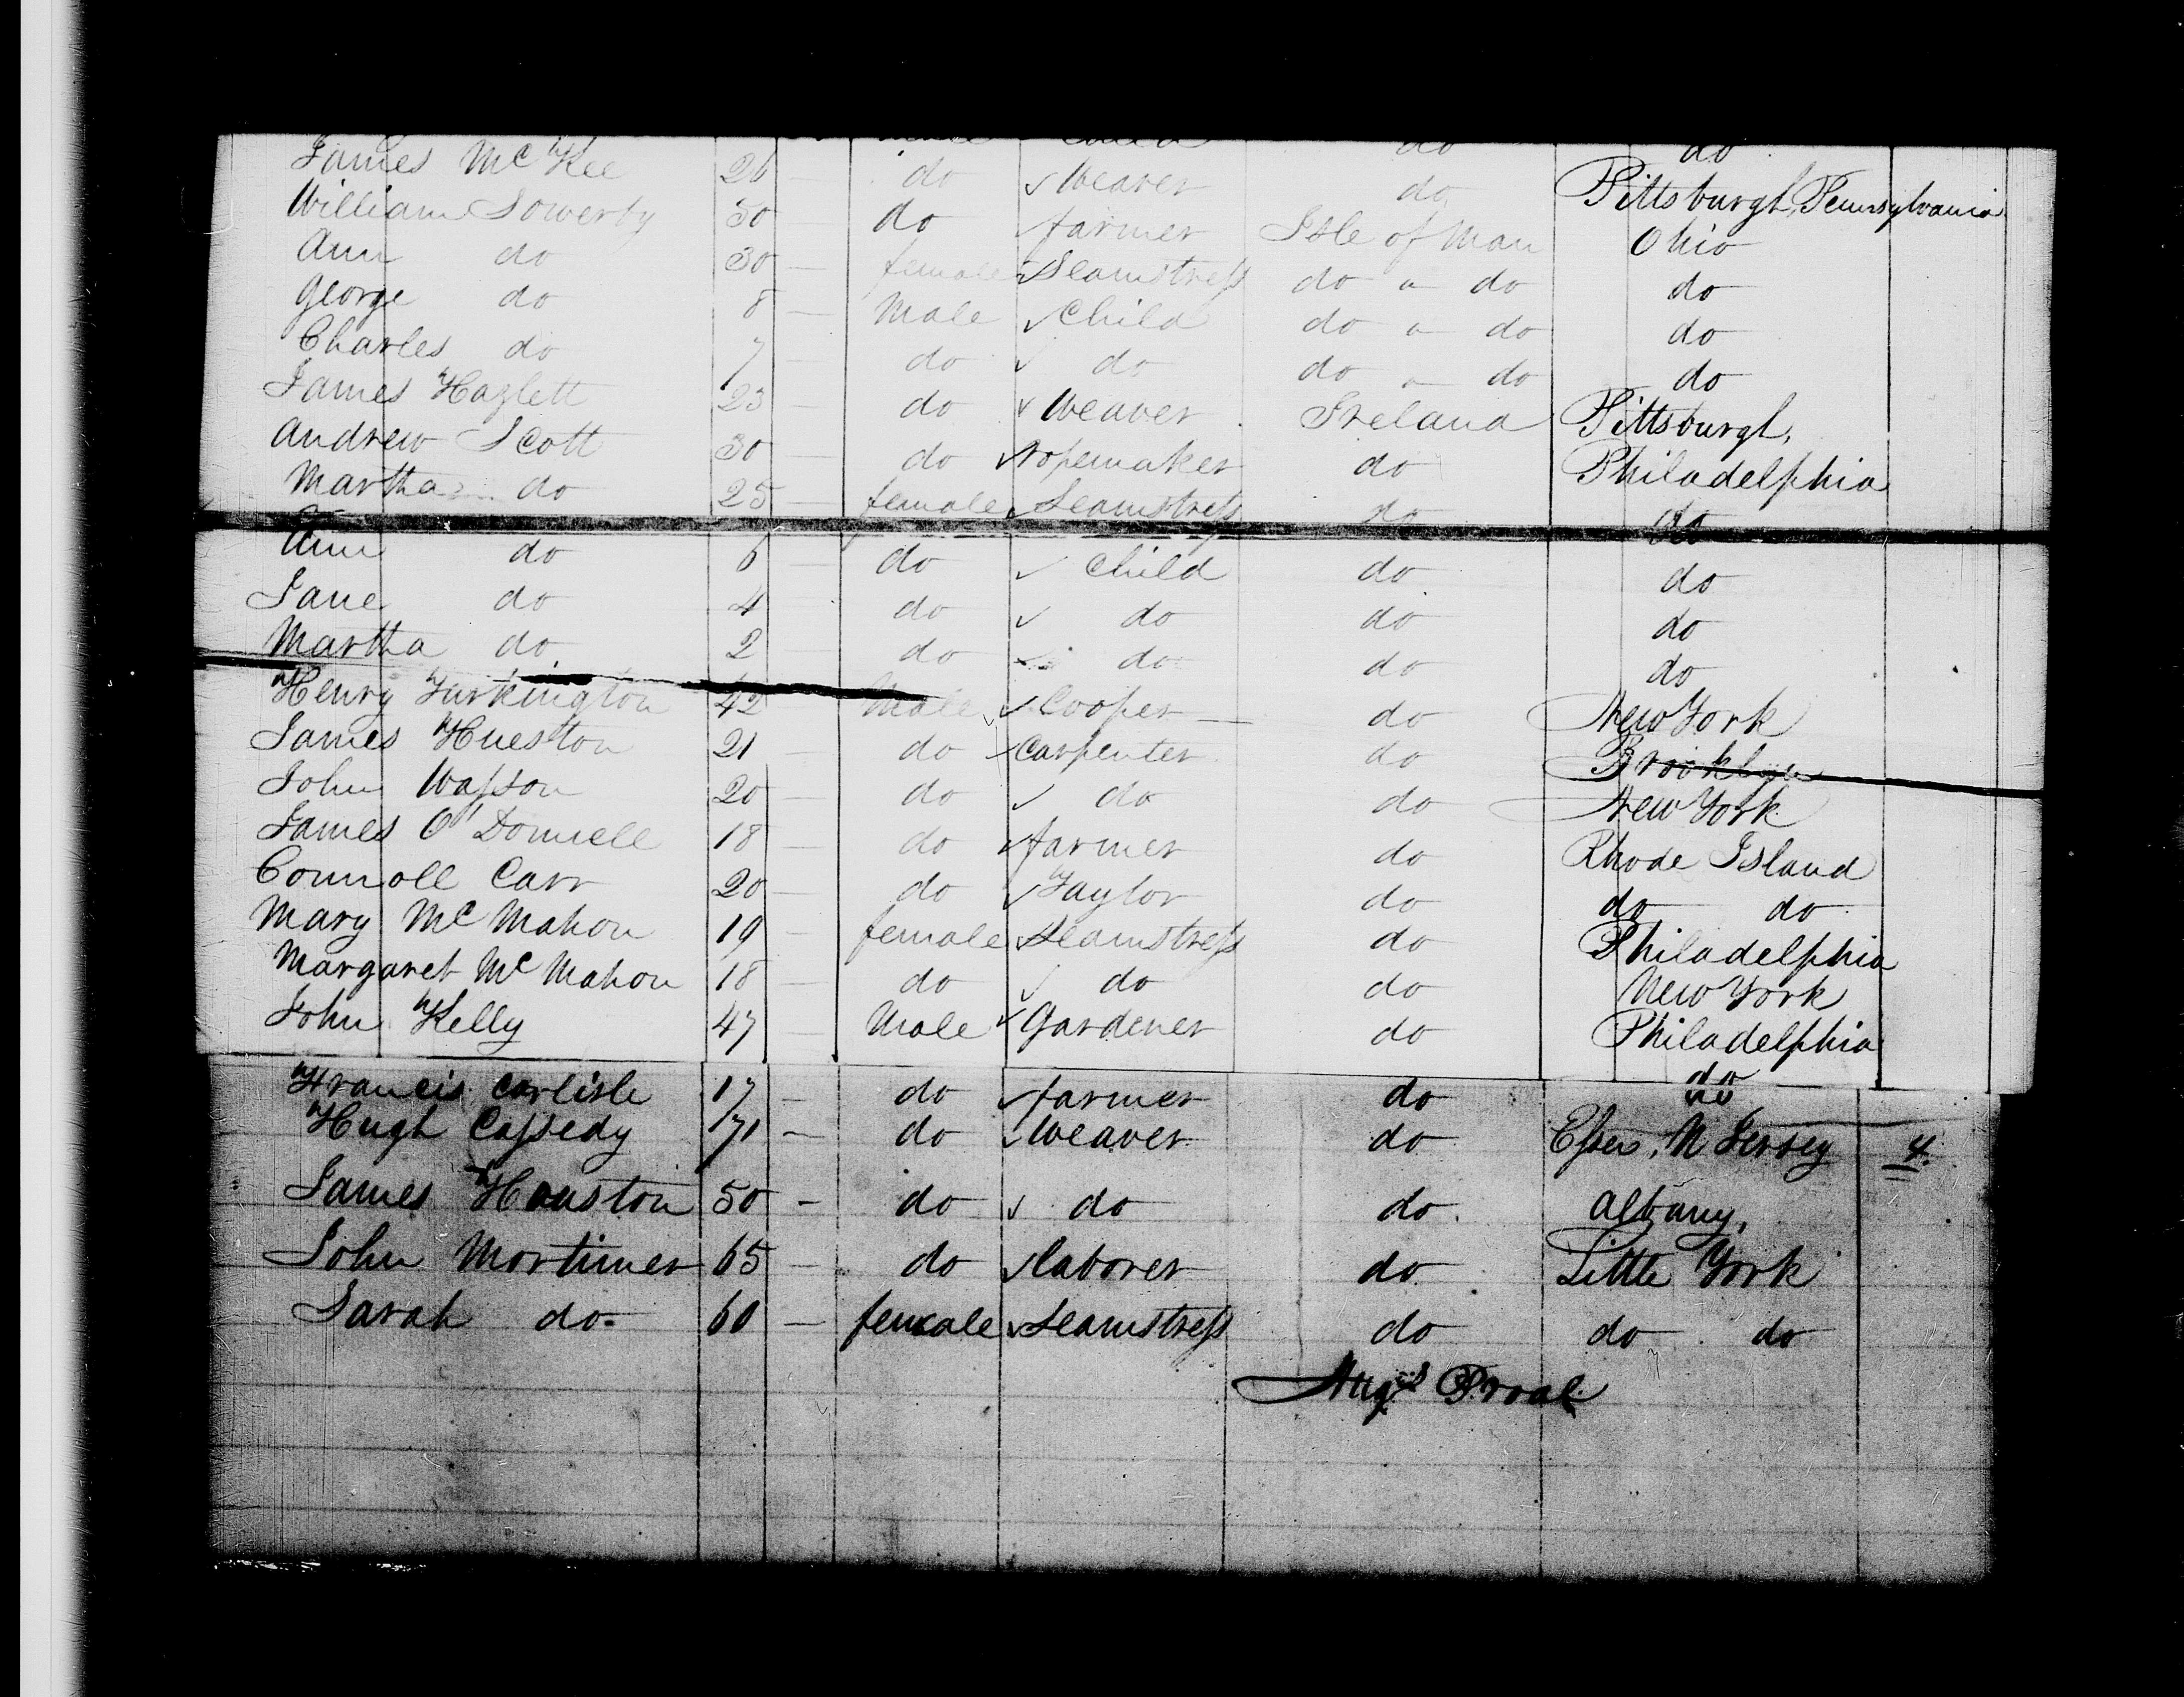 do do
James McKee 26 — do ✓ Weaver do Pittsburgh, Pennsylvania
William Sowerby 50 do farmer Isle of Man Ohio
Ann do 30 — female ✓ Seamstress do " do do
George do 8 — Male ✓ Child do " do do
Charles do 7 — do ✓ do do " do do
James Hazlett 23 — do ✓ Weaver Ireland Pittsburgh,
Andrew Scott 30 — do ✓ ropemaker do Philadelphia
Martha do 25 — female ✓ Seamstress do do
Ann do 6 — do ✓ Child do do
Jane do 4 do ✓ do do do
Martha do 2 do ✓ do do do
Henry Turkington 42 Male ✓ Cooper — do New York
James Hueston 21 — do ✓ Carpenter do Brooklyn
John Wasson 20 — do ✓ do do New York
James O'Donnell 18 — do ✓ farmer do Rhode Island
Connoll Carr 20 — do ✓ Taylor do do do
Mary McMahon 19 — female ✓ Seamstress do Philadelphia
Margaret McMahon 18 — do ✓ do do New York
John Kelly 47 — Male ✓ Gardener do Philadelphia
Francis Carlisle 17 — do ✓ farmer do do
Hugh Cassedy — do ✓ Weaver do Essex, N Jersey 4
James Houston 50 — do ✓ do do Albany,
John Mortimer 65 — do ✓ laborer do Little York
Sarah do 60 — female ✓ Seamstress do do do
Augs Proal